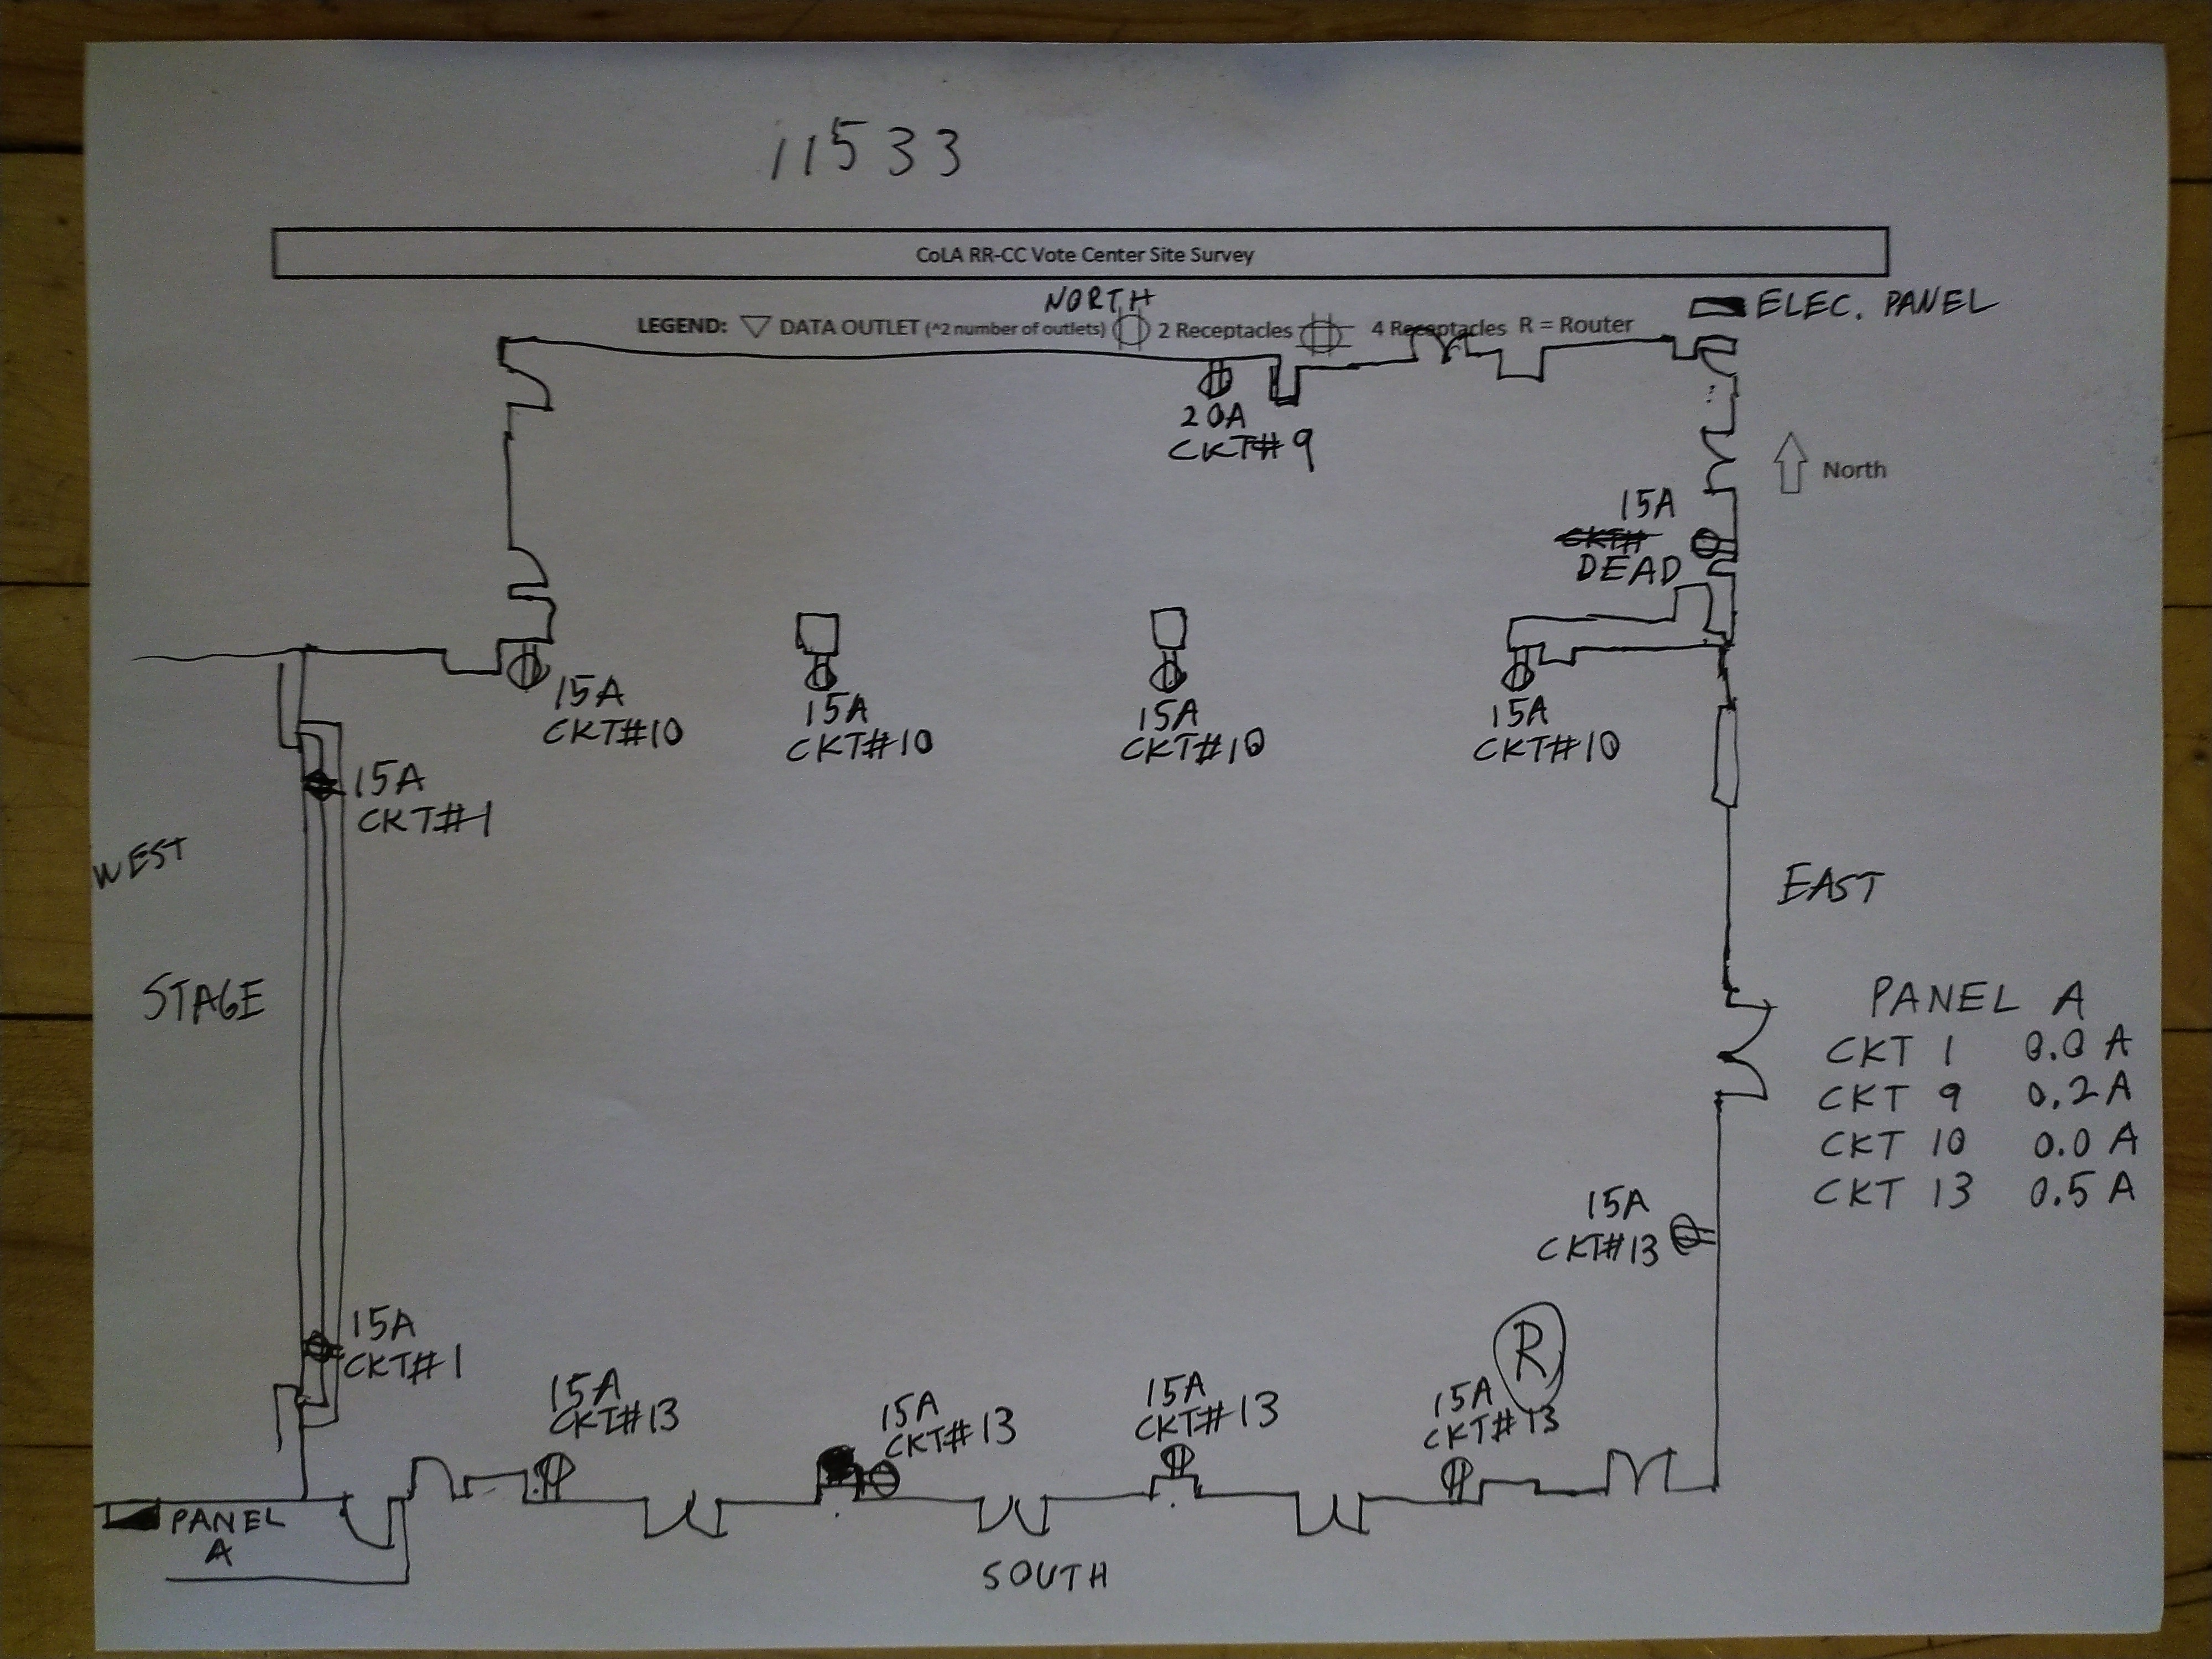 11533
CoLA RR-CC Vote Center Site Survey
NORTH
ELEC. PANEL
LEGEND: DATA OUTLET (^2 number of outlets) 2 Receptacles 4 Receptacles R = Router
20A
CKT#9
North
15A
CKT#
DEAD
15A
CKT#10
15A
CKT#10
15A
CKT#10
15A
CKT#10
15A
CKT#1
WEST
EAST
STAGE
PANEL A
CKT 1 0.0 A
CKT 9 0.2 A
CKT 10 0.0 A
CKT 13 0.5 A
15A
CKT#13
R
15A
CKT#1
15A
CKT#13
15A
CKT#13
15A
CKT#13
15A
CKT#13
PANEL
A
SOUTH